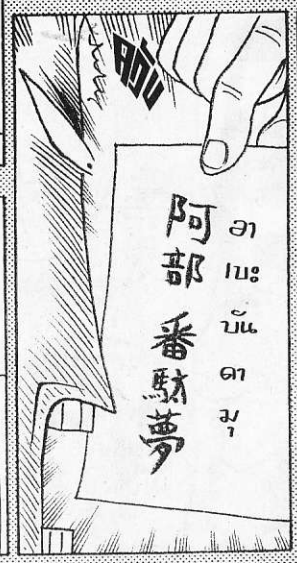 ควับ
อา เบะ บัน ดา มุ
阿部 番駄夢